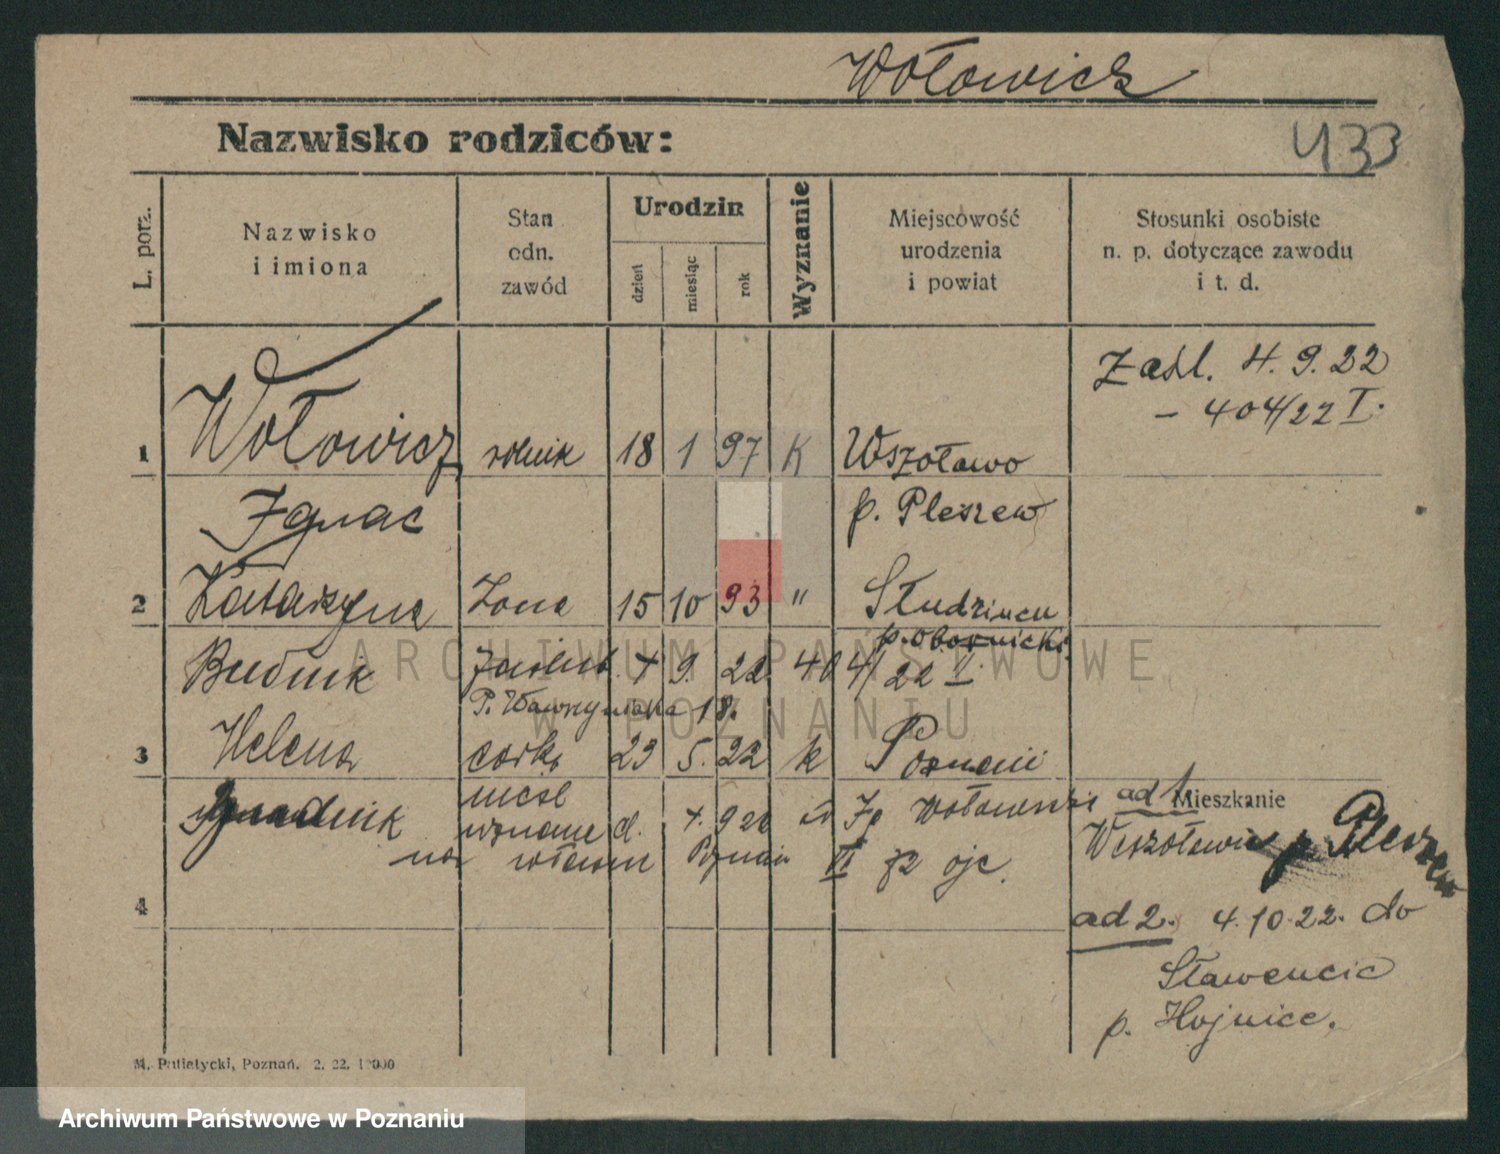 Wołowicz
433
Nazwisko rodziców:
L. porz.
Nazwisko
i imiona
Stan
odn.
zawód
Urodzin
dzień
miesiąc
rok
Wyznanie
Miejscowość
urodzenia
i powiat
Stosunki osobiste
n. p. dotyczące zawodu
i t. d.
Zaśl. 4. 9. 22
- 404/22 I.
1 Wołowicz rolnik 18 1 97 K Wszołowo
Ignac p. Pleszew
2 Katarzyna Żona 15 10 93 " Studzieńcu
p. obornicki
Budnik 4 9. 22 404/22 I.
P. Wawrzyniaka 18.
3 Helena córka 23 5. 22 k Poznań
ad 1 Mieszkanie
uznane d. 4. 9 22 Ig
na Poznań VI 82 ojc.
p Pleszew
4
ad 2. 4. 10. 22. do
Sławencic
p. Hojnice.
M. Putiatycki, Poznań. 2. 22. 1000
ARCHIWUM PAŃSTWOWE
W POZNANIU
Archiwum Państwowe w Poznaniu